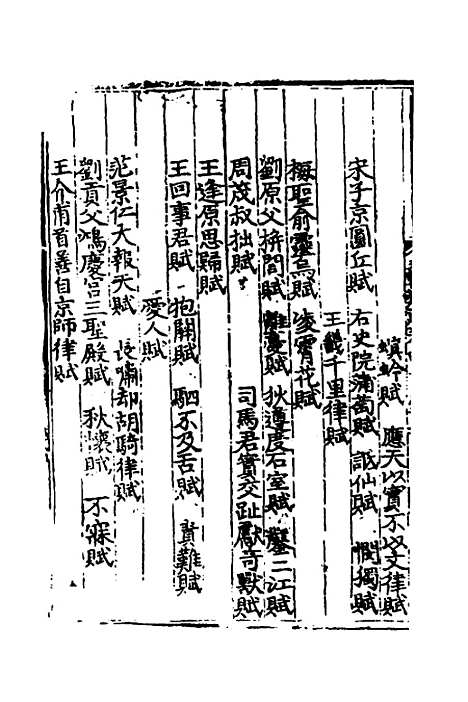 螟蛉賦　應天以實不以文律賦
宋子京圜丘賦　右史院蒲萄賦　詆仙賦　憫獨賦
王畿千里律賦
梅聖俞靈烏賦　凌霄花賦
劉原父栟櫚賦　離憂賦　狄遵度石室賦　鑿二江賦
周茂叔拙賦　司馬君實交趾獻奇獸賦
王逢原思歸賦
王回事君賦　抱關賦　駟不及舌賦　責難賦
愛人賦
范景仁大報天賦　長嘯却胡騎律賦
劉貢父鴻慶宮三聖殿賦　秋懷賦　不寐賦
王介甫首善自京師律賦